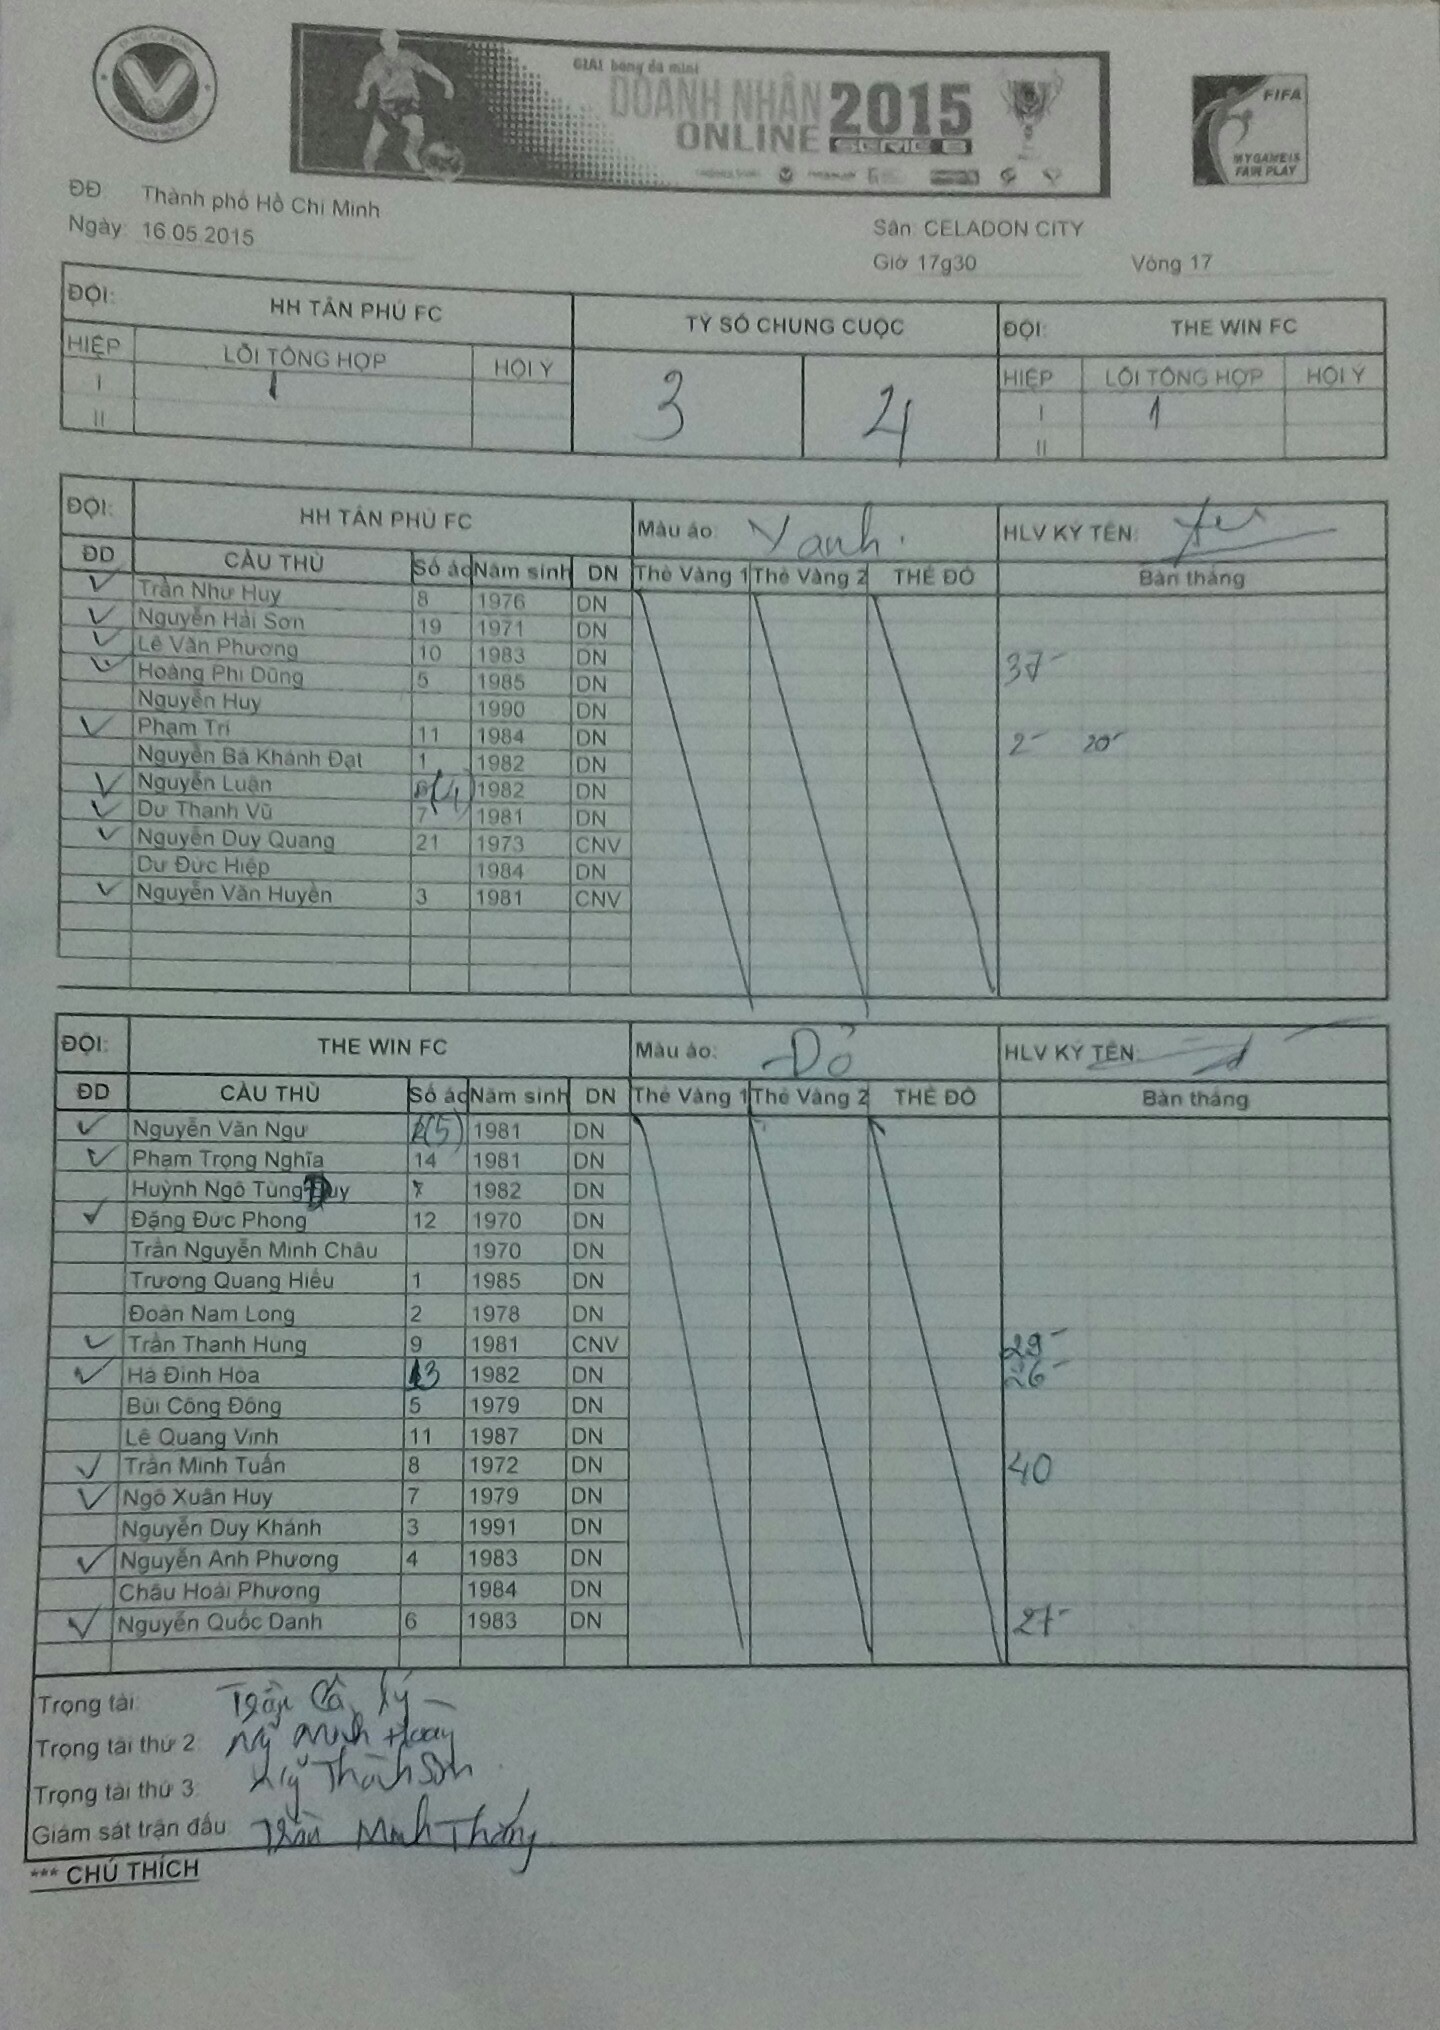 GIẢI bóng đá mini
DOANH NHÂN 2015
ONLINE SERIE B
FIFA
MY GAME IS
FAIR PLAY
ĐĐ: Thành phố Hồ Chí Minh
Ngày: 16.05.2015
Sân: CELADON CITY
Giờ 17g30 Vòng 17
ĐỘI: HH TÂN PHÚ FC TỶ SỐ CHUNG CUỘC ĐỘI: THE WIN FC
HIỆP LỖI TỔNG HỢP HỘI Ý 3 4 HIỆP LỖI TỔNG HỢP HỘI Ý
I 1 I 1
II II
ĐỘI: HH TÂN PHÚ FC Màu áo: Xanh. HLV KÝ TÊN:
ĐD CẦU THỦ Số áo Năm sinh DN Thẻ Vàng 1 Thẻ Vàng 2 THẺ ĐỎ Bàn thắng
Trần Như Huy 8 1976 DN
Nguyễn Hải Sơn 19 1971 DN
Lê Văn Phương 10 1983 DN
Hoàng Phi Dũng 5 1985 DN 37-
Nguyễn Huy 1990 DN
Phạm Trí 11 1984 DN 2- 20-
Nguyễn Bá Khánh Đạt 1 1982 DN
Nguyễn Luận 6 (4) 1982 DN
Dư Thanh Vũ 7 1981 DN
Nguyễn Duy Quang 21 1973 CNV
Dư Đức Hiệp 1984 DN
Nguyễn Văn Huyền 3 1981 CNV
ĐỘI: THE WIN FC Màu áo: Đỏ HLV KÝ TÊN:
ĐD CẦU THỦ Số áo Năm sinh DN Thẻ Vàng 1 Thẻ Vàng 2 THẺ ĐỎ Bàn thắng
Nguyễn Văn Ngư (5) 1981 DN
Phạm Trọng Nghĩa 14 1981 DN
Huỳnh Ngô Tùng Duy 1982 DN
Đặng Đức Phong 12 1970 DN
Trần Nguyễn Minh Châu 1970 DN
Trương Quang Hiếu 1 1985 DN
Đoàn Nam Long 2 1978 DN
Trần Thanh Hùng 9 1981 CNV 29-
Hà Đình Hòa 13 1982 DN 26-
Bùi Công Đông 5 1979 DN
Lê Quang Vinh 11 1987 DN
Trần Minh Tuấn 8 1972 DN 40
Ngô Xuân Huy 7 1979 DN
Nguyễn Duy Khánh 3 1991 DN
Nguyễn Anh Phương 4 1983 DN
Châu Hoài Phương 1984 DN
Nguyễn Quốc Danh 6 1983 DN 27-
Trọng tài: Trần
Trọng tài thứ 2: Minh
Trọng tài thứ 3: Thành Sơn
Giám sát trận đấu: Trần Minh Thắng
*** CHÚ THÍCH